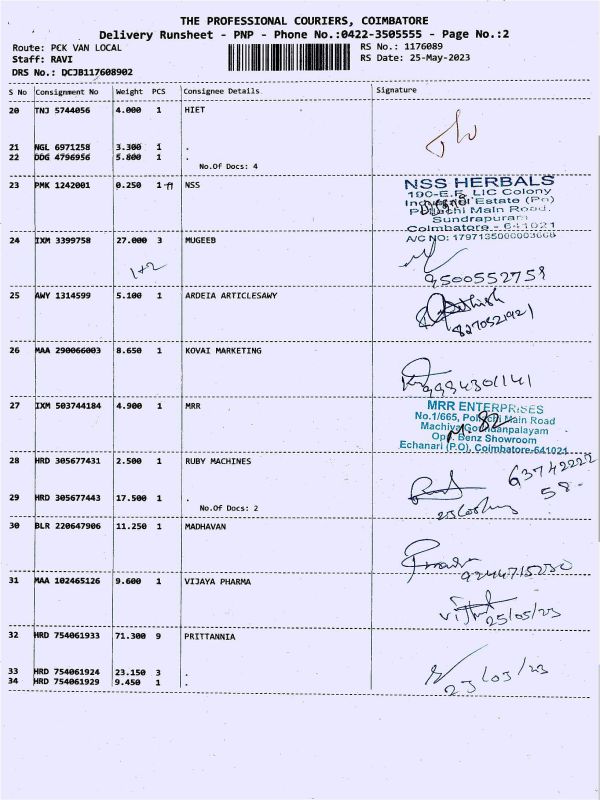 THE PROFESSIONAL COURIERS, COIMBATORE
Delivery Runsheet - PNP - Phone No.:0422-3505555 - Page No.:2
Route: PCK VAN LOCAL RS No.: 1176089
Staff: RAVI RS Date: 25-May-2023
DRS No.: DCJB117608902
S No Consignment No Weight PCS Consignee Details Signature
20 TNJ 5744056 4.000 1 HIET
21 NGL 6971258 3.300 1 .
22 DDG 4796956 5.800 1 .
No.Of Docs: 4
23 PMK 1242001 0.250 1 NSS
NSS HERBALS
190-E.F. LIC Colony
Industrial Estate (Po)
Pollachi Main Road.
Sundrapuram
Coimbatore - 641021
A/C NO: 1797135000003668
24 IXM 3399758 27.000 3 MUGEEB
1+2
9500552758
25 AWY 1314599 5.100 1 ARDEIA ARTICLESAWY
8270521921
26 MAA 290066003 8.650 1 KOVAI MARKETING
9994301141
27 IXM 503744184 4.900 1 MRR
MRR ENTERPRISES
No.1/665, Pollachi Main Road
Machiya Goundanpalayam
Opp. Benz Showroom
Echanari (P.O), Coimbatore-641021
M. 82
28 HRD 305677431 2.500 1 RUBY MACHINES
63742222
58-
29 HRD 305677443 17.500 1 .
No.Of Docs: 2
30 BLR 220647906 11.250 1 MADHAVAN
9244715230
31 MAA 102465126 9.600 1 VIJAYA PHARMA
25/05/23
32 HRD 754061933 71.300 9 PRITTANNIA
23/05/23
33 HRD 754061924 23.150 3 .
34 HRD 754061929 9.450 1 .